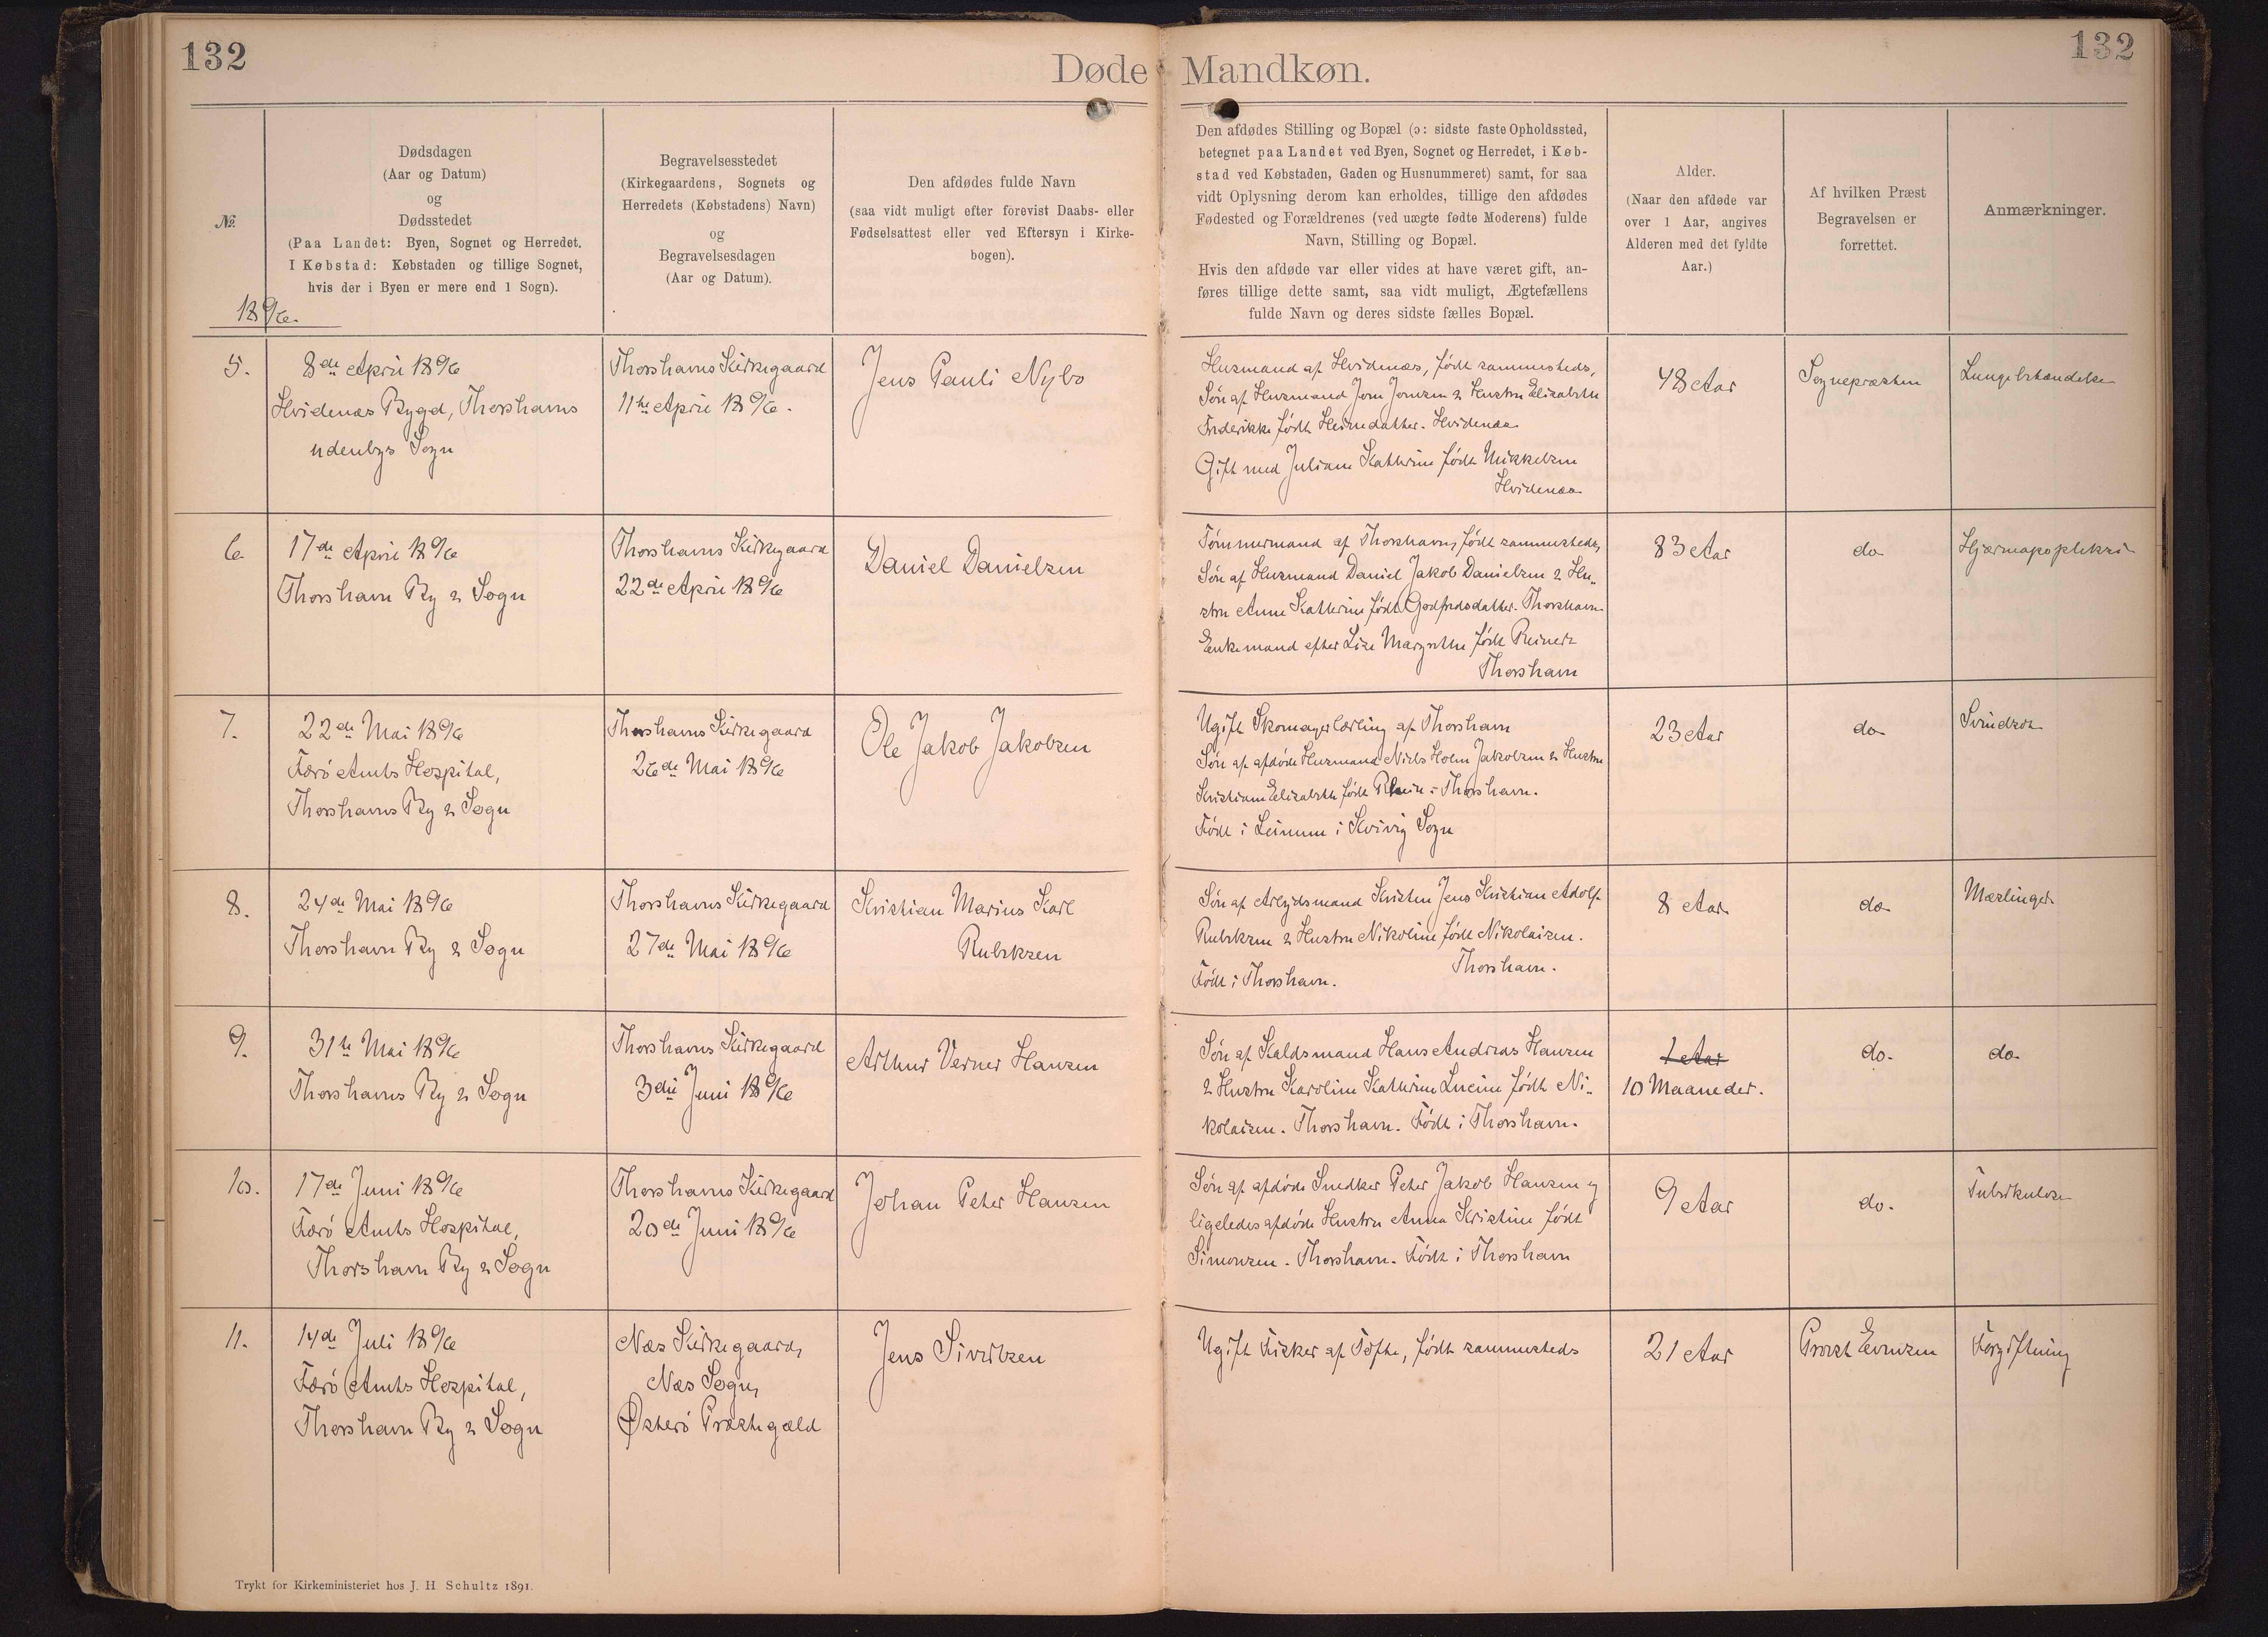 132
Døde Mandkøn.
132
№.
Dødsdagen
(Aar og Datum)
og
Dødsstedet
(Paa Landet: Byen, Sognet og Herredet.
I Købstad: Købstaden og tillige Sognet,
hvis der i Byen er mere end 1 Sogn).
Begravelsesstedet
(Kirkegaardens, Sognets og
Herredets (Købstadens) Navn)
og
Begravelsesdagen
(Aar og Datum).
Den afdødes fulde Navn
(saa vidt muligt efter forevist Daabs- eller
Fødselsattest eller ved Eftersyn i Kirke-
bogen).
Den afdødes Stilling og Bopæl (ɔ: sidste faste Opholdssted,
betegnet paa Landet ved Byen, Sognet og Herredet, i Køb-
stad ved Købstaden, Gaden og Husnummeret) samt, for saa
vidt Oplysning derom kan erholdes, tillige den afdødes
Fødested og Forældrenes (ved uægte fødte Moderens) fulde
Navn, Stilling og Bopæl.
Hvis den afdøde var eller vides at have været gift, an-
føres tillige dette samt, saa vidt muligt, Ægtefællens
fulde Navn og deres sidste fælles Bopæl.
Alder.
(Naar den afdøde var
over 1 Aar, angives
Alderen med det fyldte
Aar.)
Af hvilken Præst
Begravelsen er
forrettet.
Anmærkninger.
1896.
5.
8de April 1896
Hvidenæs Bygd, Thorshavns
udenbys Sogn
Thorshavns Kirkegaard
11te April 1896.
Jens Pauli Nybo
Husmand af Hvidenæs, født sammesteds,
Søn af Husmand Joen Joensen & Hustru Elisabeth
Frderikke født Heinedatter. Hvidenæs
Gift med Juliane Kathrine født Mikkelsen
Hvidenæs
48 Aar
Sognepræsten
Lungebetændelse
6.
17de April 1896
Thorshavn By & Sogn
Thorshavns Kirkegaard
22de April 1896
Daniel Danielsen
Tømmermand af Thorshavn, født sammesteds,
Søn af Husmand Daniel Jakob Danielsen & Hu-
stru Anne Kathrine født Godfredsdatter. Thorshavn
Enkemand efter Lise Margrethe født Reinert
Thorshavn
83 Aar
do
Hjærneapopleksi
7.
22de Mai 1896
Færö Amts Hospital,
Thorshavns By & Sogn
Thorshavns Kirkegaard
26de Mai 1896
Ole Jakob Jakobsen
Ugift Skomagerlærling af Thorshavn
Søn af afdøde Husmand Niels Holm Jakobsen & Hustru
Kristiane Elisabeth født i Thorshavn.
Født i Leinum i Kvivig Sogn
23 Aar
do
Svindsot
8.
24de Mai 1896
Thorshavn By & Sogn
Thorshavns Kirkegaard
27de Mai 1896
Kristian Marius Karl
Rubeksen
Søn af Arbejdsmand Kristen Jens Kristian Adolf
Rubeksen & Hustru Nikoline født Nikolaisen.
Thorshavn.
Født i Thorshavn.
8 Aar
do
Mæslinger
9.
31te Mai 1896
Thorshavns By & Sogn
Thorshavns Kirkegaard
3die Juni 1896
Arthur Verner Hansen
Søn af Kaldsmand Hans Andreas Hansen
& Hustru Karoline Kathrine Lucine født Ni-
kolaisen. Thorshavn. Født i Thorshavn.
1 Aar
10 Maaneder.
do.
do.
10.
17de Juni 1896
Færö Amts Hospital,
Thorshavn By & Sogn
Thorshavns Kirkegaard
20de Juni 1896
Johan Peter Hansen
Søn af afdøde Snedker Peter Jakob Hansen og
ligeledes afdøde Hustru Anna Kristine født
Simonsen. Thorshavn. Født i Thorshavn
9 Aar
do.
Tuberkulose
11.
14de Juli 1896
Færö Amts Hospital,
Thorshavn By & Sogn
Næs Kirkegaard,
Næs Sogn,
Østerö Præstegæld
Jens Sivertsen
Ugift Fisker af Tofte, født sammesteds
21 Aar
Provst Evensen
Forgiftning
Trykt for Kirkeministeriet hos J. H Schultz 1891.